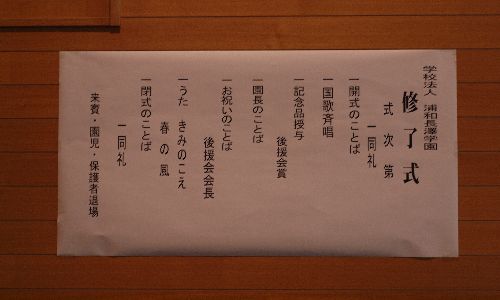 学校法人 浦和長澤学園
修了式
式次第
一同礼
一開式のことば
一国歌斉唱
一記念品授与
後援会賞
一園長のことば
一お祝いのことば
後援会会長
一うた きみのこえ
春の風
一閉式のことば
一同礼
来賓・園児・保護者退場